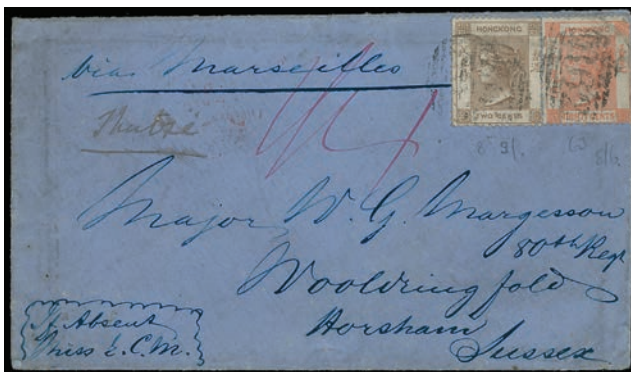 HONGKONG
HONGKONG
via Marseilles
TWO CENTS
Major W. G. Margesson
80th Regt
Wooldringfold
Horsham
Sussex
If Absent
Miss E. C. M.